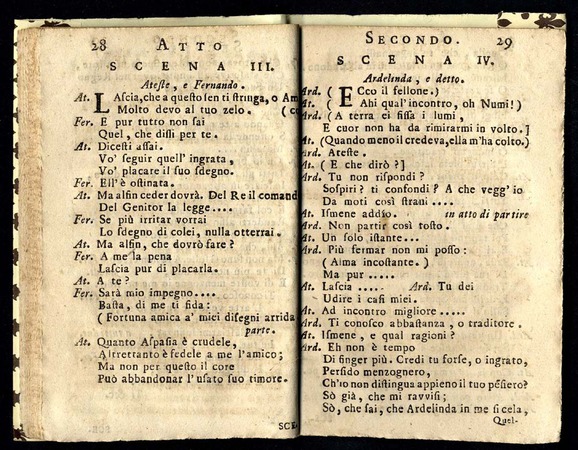 28 ATTO
SCENA III.
Ateste, e Fernando.
At. Lascia, che a questo sen ti stringa, o Am
Molto devo al tuo zelo. (co
Fer. E pur tutro non sai
Quel, che dissi per te.
At. Dicesti assai.
Vo' seguir quell' ingrata,
Vo' placare il suo sdegno.
Fer. Ell'è ostinata.
At. Ma alfin ceder dovrà. Del Re il comand
Del Genitor la legge....
Fer. Se più irritar vorrai
Lo sdegno di colei, nulla otterrai.
At. Ma alfin, che dovrò fare?
Fer. A me la pena
Lascia pur di placarla.
At. A te?
Fer. Sarà mio impegno....
Basta, di me ti fida:
(Fortuna amica a' miei disegni arrida
parte.
At. Quanto Aspasia è crudele,
Altrettanto è fedele a me l'amico;
Ma non per questo il core
Può abbandonar l'usato suo timore.
SCE-
SECONDO. 29
SCENA IV.
Ardelinda, e detto.
Ard. (Ecco il fellone.)
At. (Ahi qual'incontro, oh Numi!)
Ard. (A terra ei fissa i lumi,
E cuor non ha da rimirarmi in volto.]
At. (Quando meno il credeva, ella m'ha colto.)
Ard. Ateste.
At. (E che dirò?]
Ard. Tu non rispondi?
Sospiri? ti confondi? A che vegg'io
Da moti così strani....
At. Ismene addio. in atto di partire
Ard. Non partir così tosto.
At. Un solo istante...
Ard. Più fermar non mi posso:
(Alma incostante.)
Ma pur.....
At. Lascia.... Ard. Tu dei
Udire i casi miei.
At. Ad incontro migliore.....
Ard. Ti conosco abbastanza, o traditore.
At. Ismene, e qual ragioni?
Ard. Eh non è tempo
Di finger più. Credi tu forse, o ingrato,
Perfido menzognero,
Ch'io non distingua appieno il tuo pẽsiero?
Sò già, che mi ravvisi;
Sò, che sai, che Ardelinda in me si cela,
Quel-